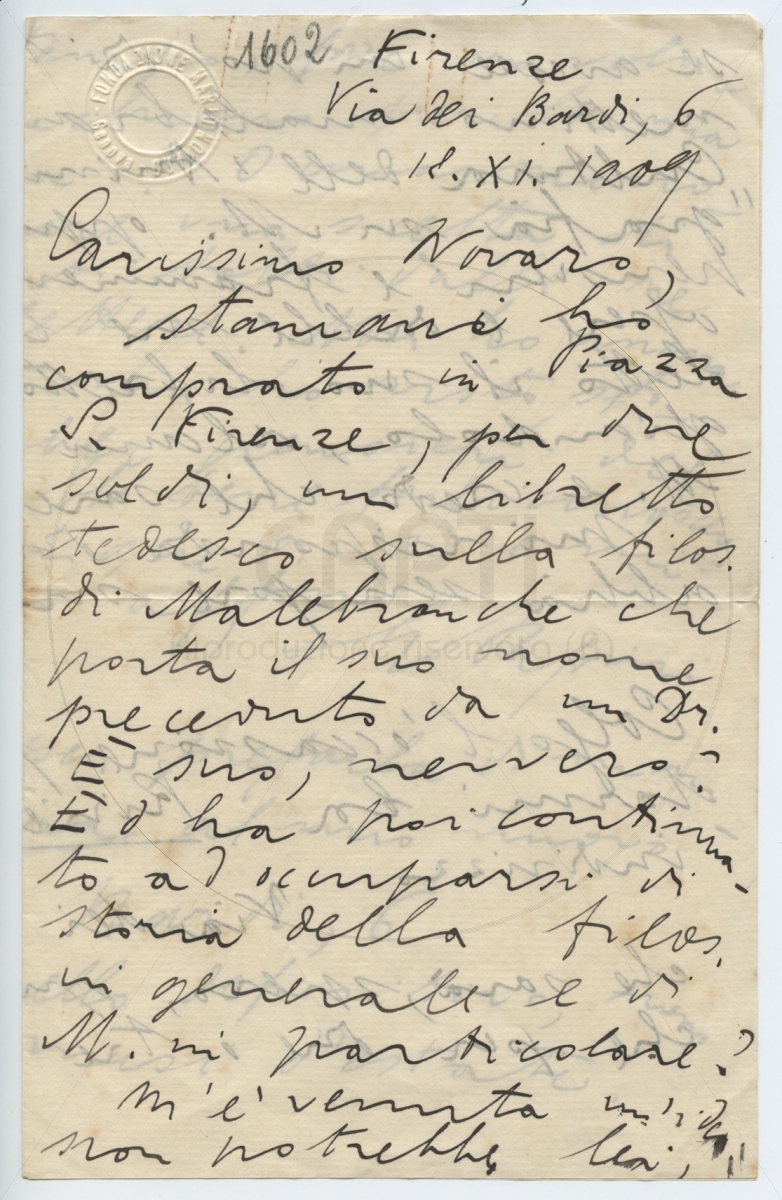 1602
Firenze
Via dei Bardi, 6
18. XI. 1909
Carissimo Novaro,
stamani ho
comprato in Piazza
S. Firenze, per due
soldi, un libretto
tedesco sulla filos.
di Malebranche che
porta il suo nome
preceduto da un Dr.
È suo, nevvero?
Ed ha poi continua-
to ad occuparsi di
storia della filos.
in generale e di
M. in particolare?
M'è venuta un'idea:
non potrebbe lei,
FONDAZIONE MARIO NOVARO
riproduzione riservata (C)